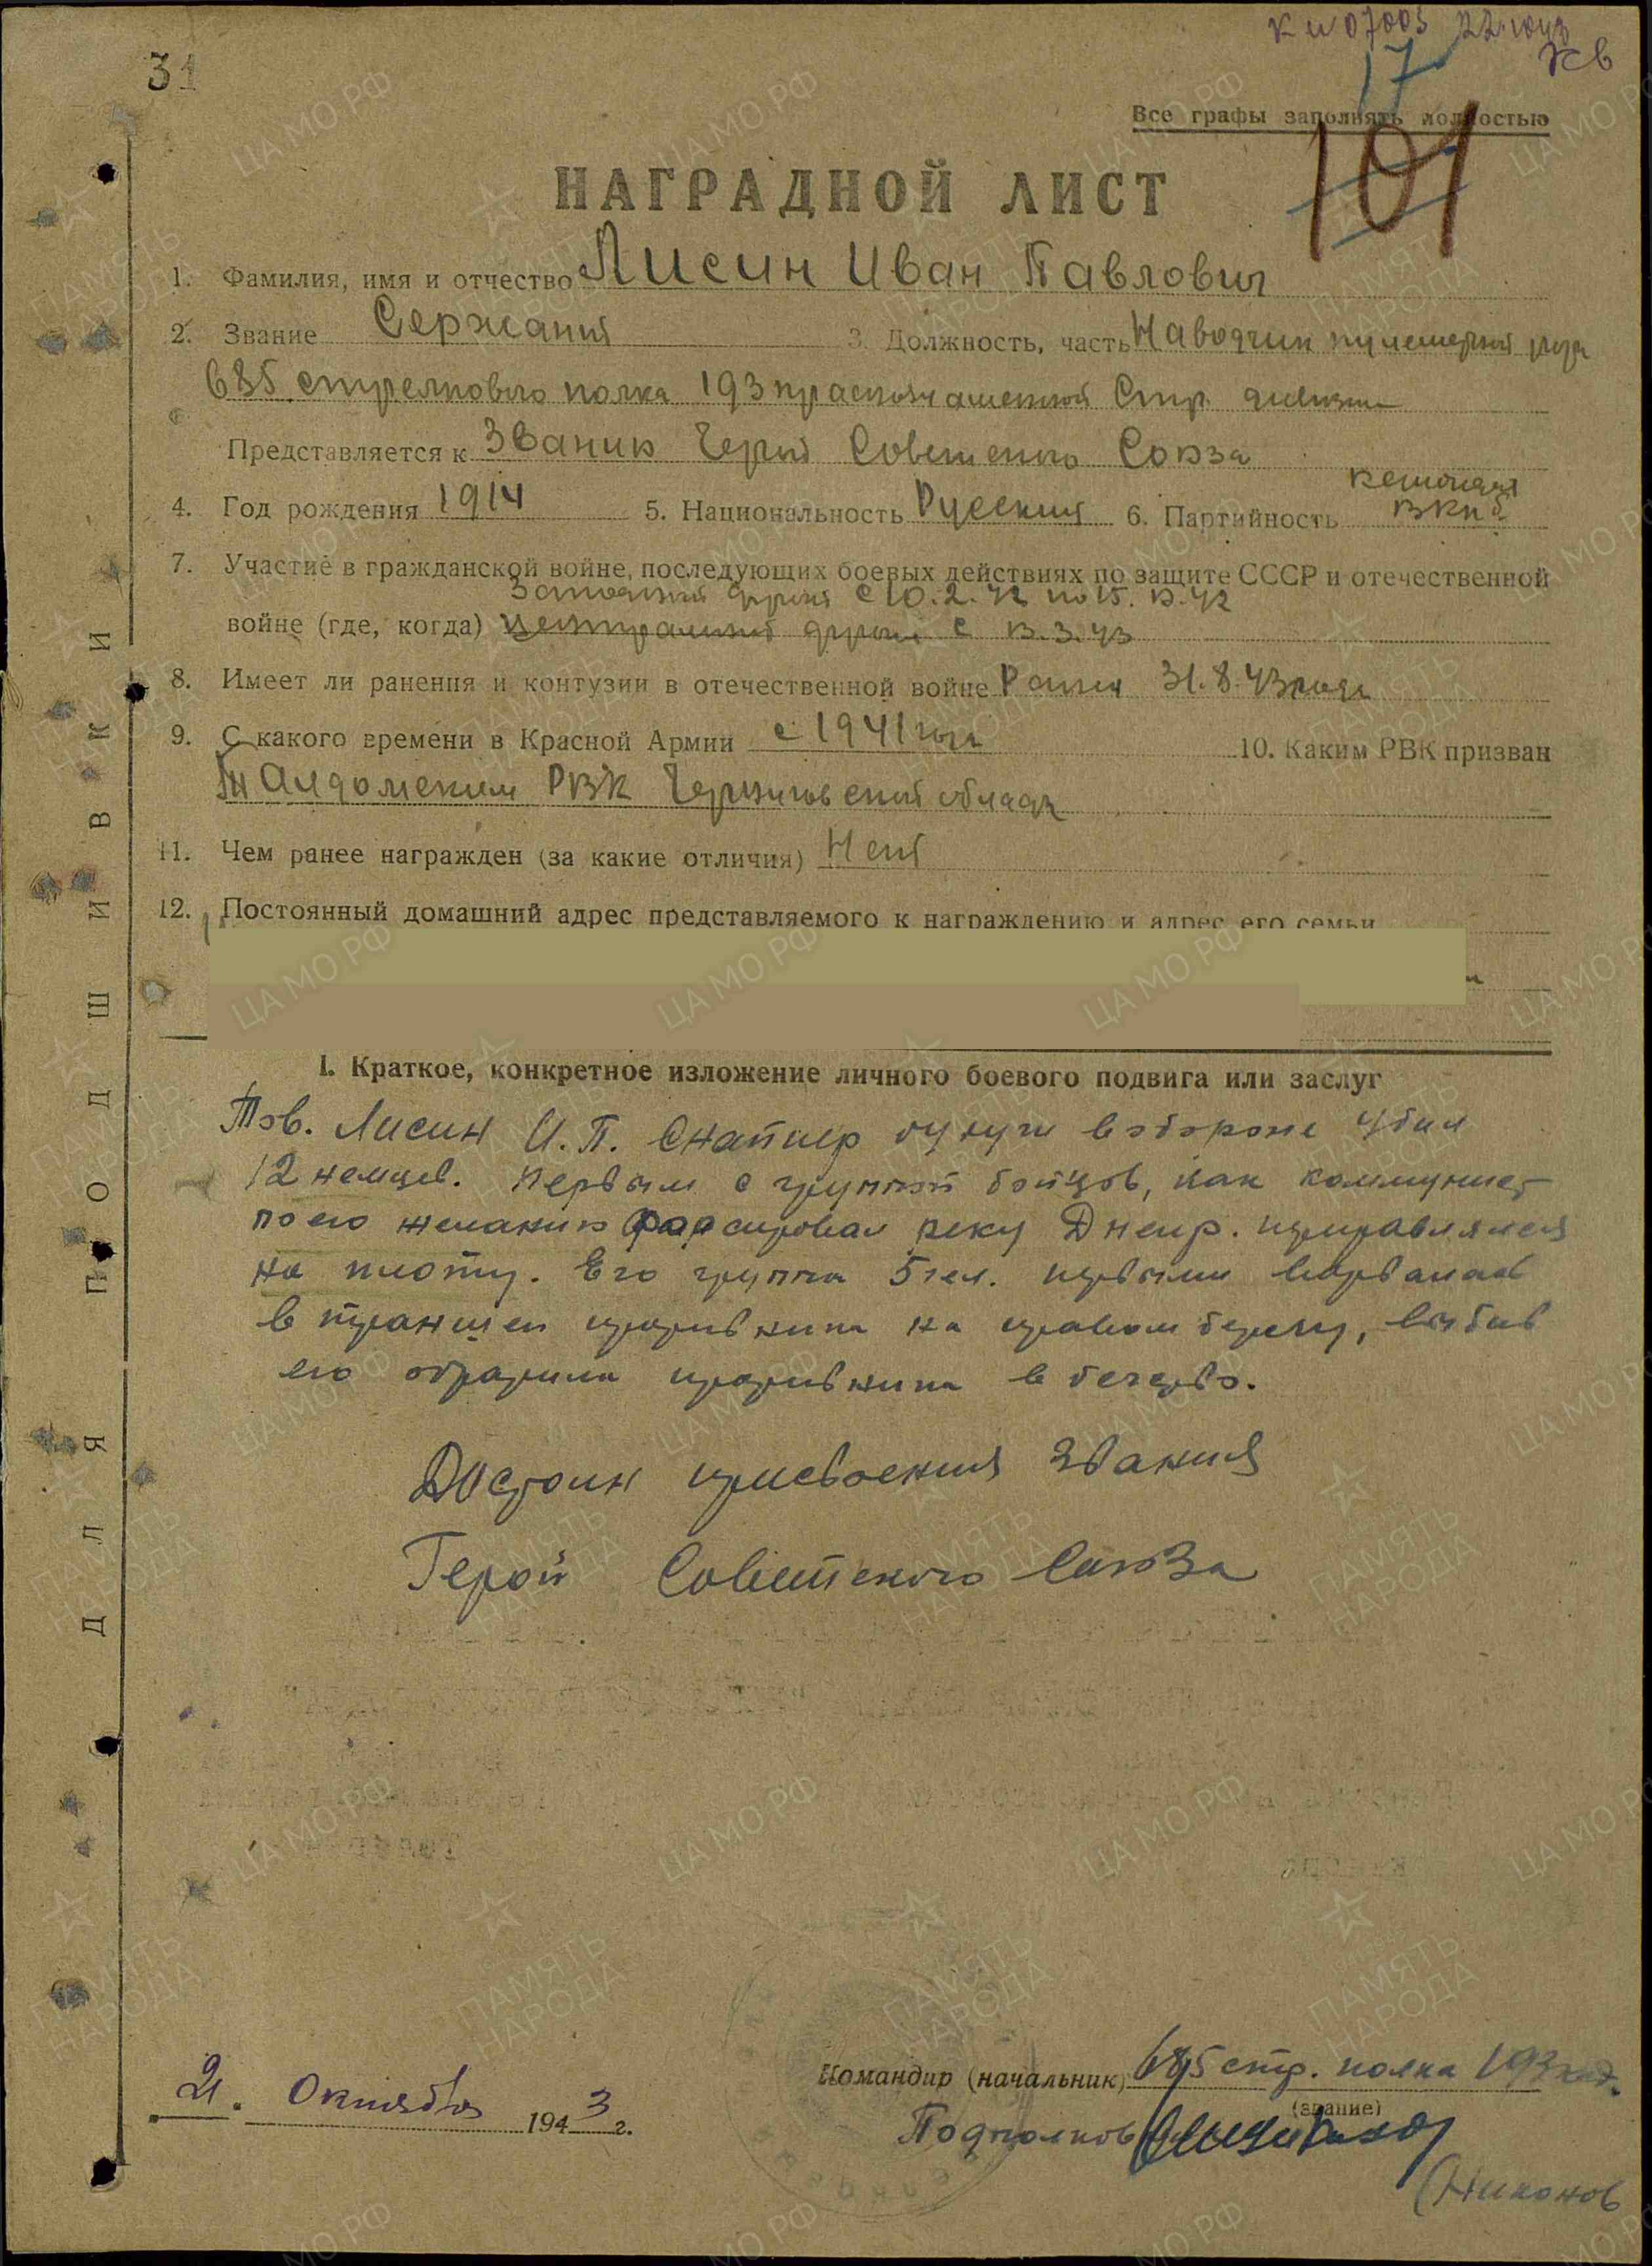 31
22.10.43
КВ
17
Все графы заполнять полностью
101
НАГРАДНОЙ ЛИСТ
1. Фамилия, имя и отчество Лисин Иван Павлович
2. Звание Сержант 3. Должность, часть Наводчик пулеметной роты
685 стрелкового полка 193 краснознаменной Стр. дивизии
Представляется к Званию Герой Советского Союза
4. Год рождения 1914 5. Национальность Русский 6. Партийность ВКПб
7. Участие в гражданской войне, последующих боевых действиях по защите СССР и отечественной
Западный фронт с 10.2.42 по 15.12.42
войне (где, когда) Центральный фронт с 13.3.43
8. Имеет ли ранения и контузии в отечественной войне Ранен 31.8.43 года
9. С какого времени в Красной Армии с 1941 года 10. Каким РВК призван
РВК Черниговской области
11. Чем ранее награжден (за какие отличия) Нет
12. Постоянный домашний адрес представляемого к награждению и адрес его семьи
I. Краткое, конкретное изложение личного боевого подвига или заслуг
Тов. Лисин И.П. Снайпер будучи в обороне убил
12 немцев. Первым с группой бойцов, как коммунист
по его желанию форсировал реку Днепр. переправлялся
на плоту. Его группа 5 чел. первыми ворвалась
в траншеи противника на правом берегу, выбив
его обратила противника в бегство.
Достоин присвоения звания
Герой Советского Союза
21. Октября 1943 г.
Командир (начальник) 685 стр. полка 193
(звание)
Подполков
(Никонов
ДЛЯ ПОДШИВКИ
ЦА МО РФ
ПАМЯТЬ НАРОДА